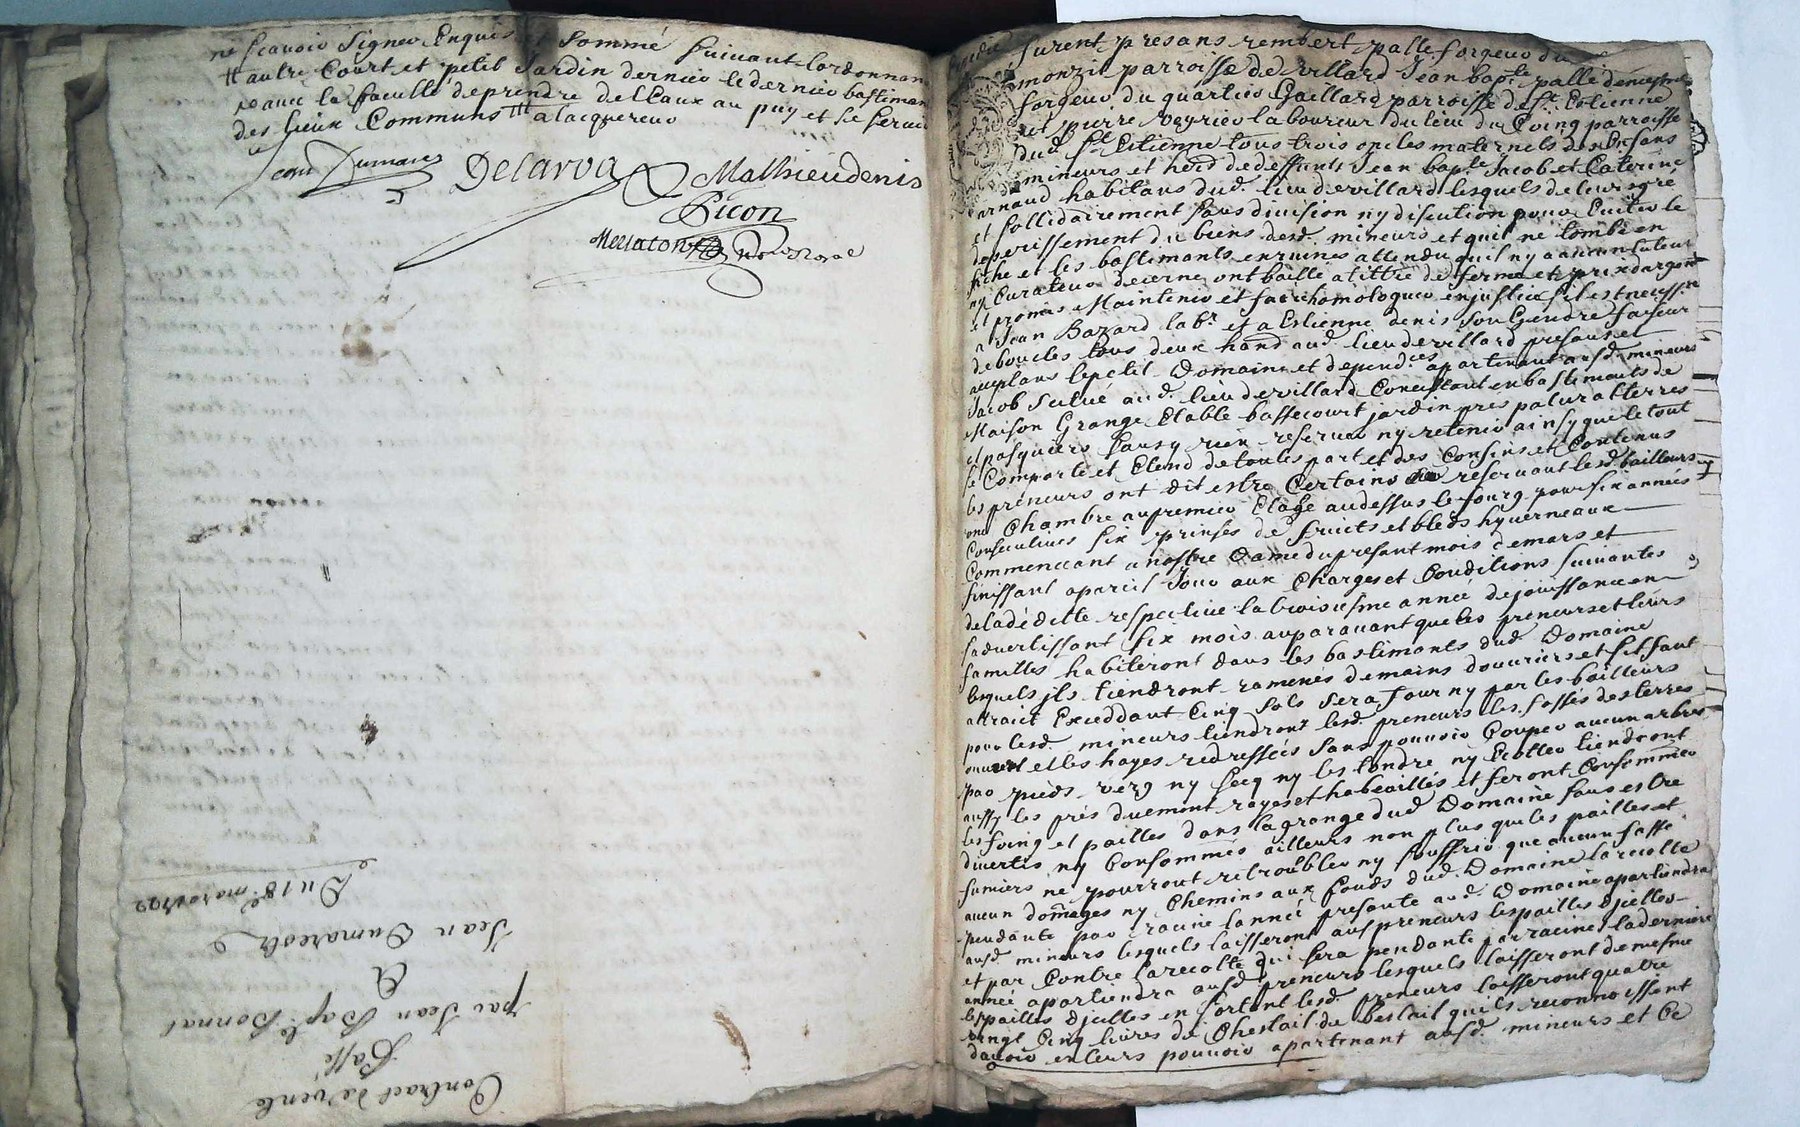 ne scavoir signer Enquis et sommé suivant lordonnan
# autre Court et petit Jardin dernier le dernier bastimen
avec la faculté de prendre de l Eaux au puy et se servir
des lieux Communs # a lacquereur
Jean Dumarest
Delaroa Mathieu denis
Picon
Not Royal
furent presans rembert palle forgeur du
monzil parroisse de villard Jean bapte palle de mesme
forgeur du quartier Gaillard parroisse de St Estienne
et pierre veyrier laboureur du lieu du Coing parroisse
dud St Estienne tous trois oncles maternels des enfans
mineurs et herd de deffunts Jean bapte Jacob et Caterine
arnaud habitans dud lieu de villard lesquels de leur gré
et sollidairement sans division ny discution pour Eviter le
deperissement du biens desd mineurs et quil ne tombe en
friche et les bastimants en ruines attendu quil ny a aucun tuteur
ny Curateur decerné ont baillé a tittre de ferme et prix dargent
et promis Maintenir et faire homologuer en justice sil est necessre
a Jean Bazard labr et a Estienne denis son Gendre faiseur
de boucles tous deux hand aud lieu de villard presans et
acceptans le petit Domaine et dependces apartenant ausd mineurs
Jacob scitué aud lieu de villard Concistant en bastimants de
Maison Grange Etable bassecourt jardin pres paturat terres
et pasquiers sans y rien reserver ny retenir ainsy que le tout
se Comporte et Etend de toutes part et des Confins et Contenus
les preneurs ont dit estre Certains reservant lesd bailleurs
une Chambre au premier Etage au dessus le fourg pour six années
Consecutives six prinses de fruits et bleds hyverneaux
Commencant a nostre Dame du presant mois de mars et
finissant a pareil Jour aux Charges et Conditions suivantes
de la déditte respective la troisiesme année de jouissance en
sadvertissant six mois auparavant que les preneurs et leurs
familles habiteront dans les bastimants dud Domaine
lesquels jls tiendront ramenés de mains douvriers et sil faut
attrait Exceddant Cinq sols sera fourny par les bailleurs
pour lesd mineurs tiendront lesd preneurs les fossés des terres
ouvert et les hayes redressées sans pouvoir Couper aucun arbres
par pieds verg ny secq ny les tondre ny Ecotter tiendront
aussy les prés duement rayes et habeaillés et feront Consommer
les foing et pailles dans la grange dud Domaine sans estre
divertis ny Consommés ailleurs non plus que les pailles et
fumiers ne pourront retroubler ny souffrir que aucun fasse
aucun domages ny Chemins aux fonds dud Domaine la recolte
pendante par racine lannée presante aud Domaine apartiendra
ausd mineurs lesquels laisseront aus preneurs les pailles d jcelles
et par Contre la recolte qui sera pendante par racine la derniere
année apartiendra ausd preneurs lesquels laisseront de mesme
les pailles d jcelles en sortant lesd preneurs laisseront quatre
vingt Cinq livres de Chestail du bestail quils reconnoissent
davoir en leurs pouvoir apartenant ausd mineurs et Ce
Contract de vente
Passé
par Jean Bapte Bonnat
A
Jean Dumarest
Du 18e mars